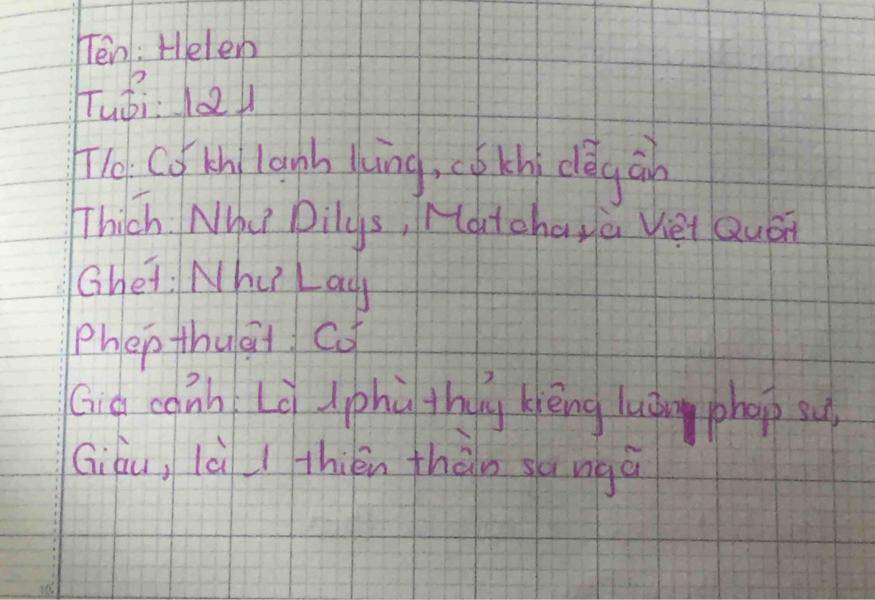 Tên: Helen
Tuổi: 121
T/c: Có khi lạnh lùng, có khi dễ gần
Thích: Như Dilys, Matcha và Việt Quất
Ghét: Như Lay
Phép thuật: Có
Gia cảnh: Là 1 phù thủy kiêng luôn pháp sư,
Giàu, là 1 thiên thần sa ngã